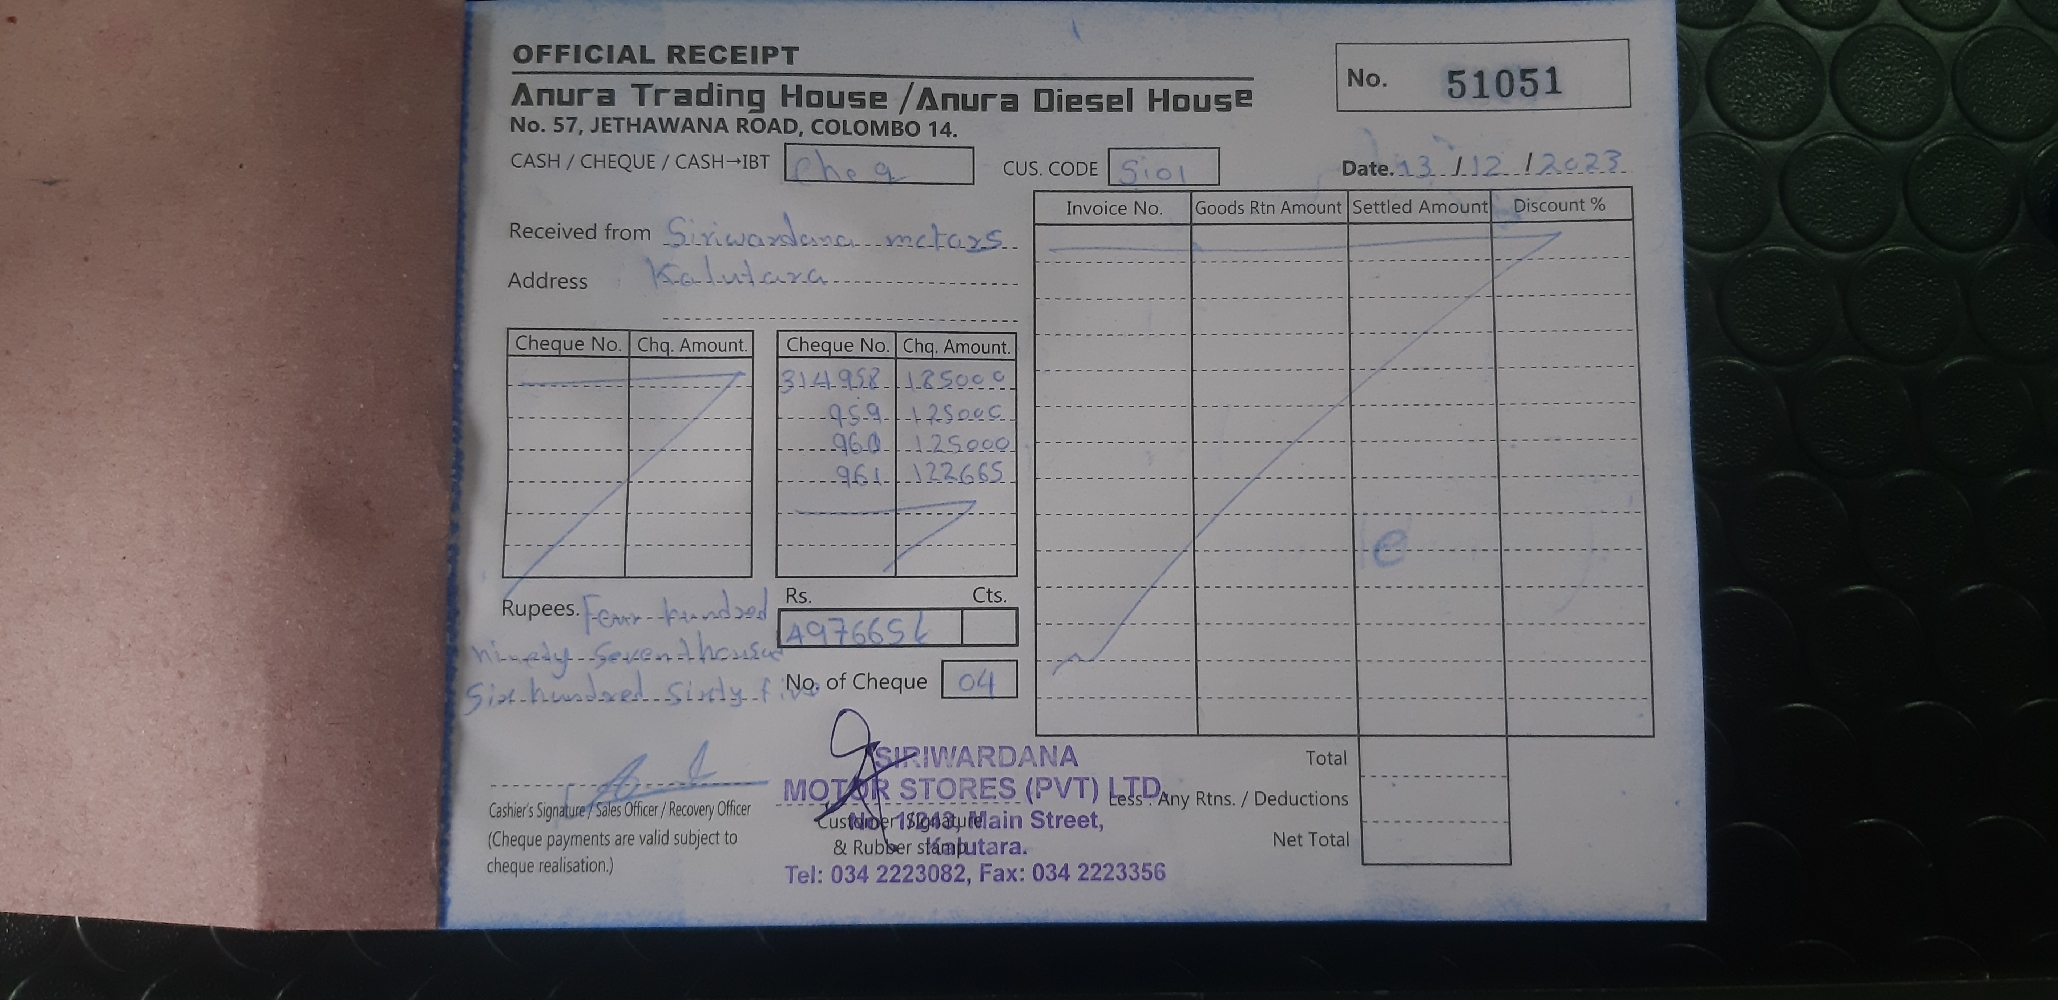 OFFICIAL RECEIPT
Anura Trading House / Anura Diesel House
No. 57, JETHAWANA ROAD, COLOMBO 14.
No. 51051
CASH / CHEQUE / CASH→IBT Cheq
CUS. CODE Si01
Date. 13 / 12 / 2023
Received from Siriwardana motars
Address Kalutara
Invoice No. Goods Rtn Amount Settled Amount Discount %
Cheque No. Chq. Amount. Cheque No. Chq. Amount.
314958 125000
959 125000
960 125000
961 122665
Rs. Cts.
Rupees. Four hundred
ninety seven thousand
Six hundred sixty five
No. of Cheque 04
SIRIWARDANA
MOTOR STORES (PVT) LTD.
Main Street,
Kalutara.
Tel: 034 2223082, Fax: 034 2223356
Cashier's Signature / Sales Officer / Recovery Officer
(Cheque payments are valid subject to
cheque realisation.)
Customer Signature
& Rubber stamp
Total
Less : Any Rtns. / Deductions
Net Total